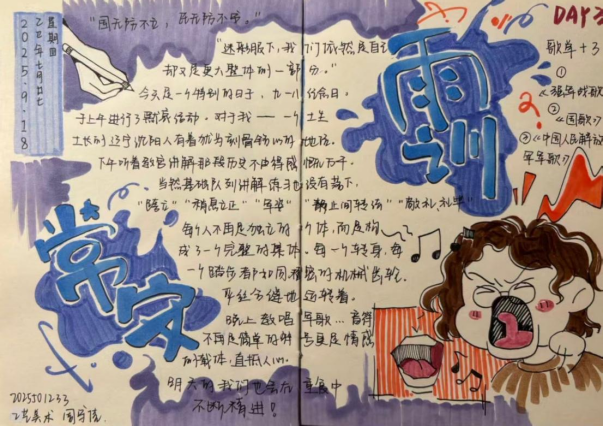 2025.9.18
乙巳年七月廿七
星期四
"国无防不立，民无防不安。"
"迷彩服下，我们依然是自己
却又是更大整体的一部分。"
今天是一个特别的日子，九一八纪念日。
于上午进行了默哀活动。对于我——一个土生
土长的辽宁沈阳人有着犹为刻骨铭心的地位。
下午听着教官讲解那段历史不由得感慨万千。
当然基础队列讲解练习也没有落下。
"踏立" "稍息立正" "军姿" "静止间转法" "敬礼、礼毕"
每个人不再是独立的个体，而是构
成了一个完整的集体。每一个转身，每
一个踏步看护如同精密的机械齿轮，
严丝合缝地运转着。
晚上教唱军歌…音符
不再是简单的
的载体，直抵人心。
明天的我们也会在军训中
不断精进！
雨之训
常安
DAY3
歌单+3
①
《强军战歌》
②
《国歌》
③《中国人民解放
军军歌》
2025501233
艺美术